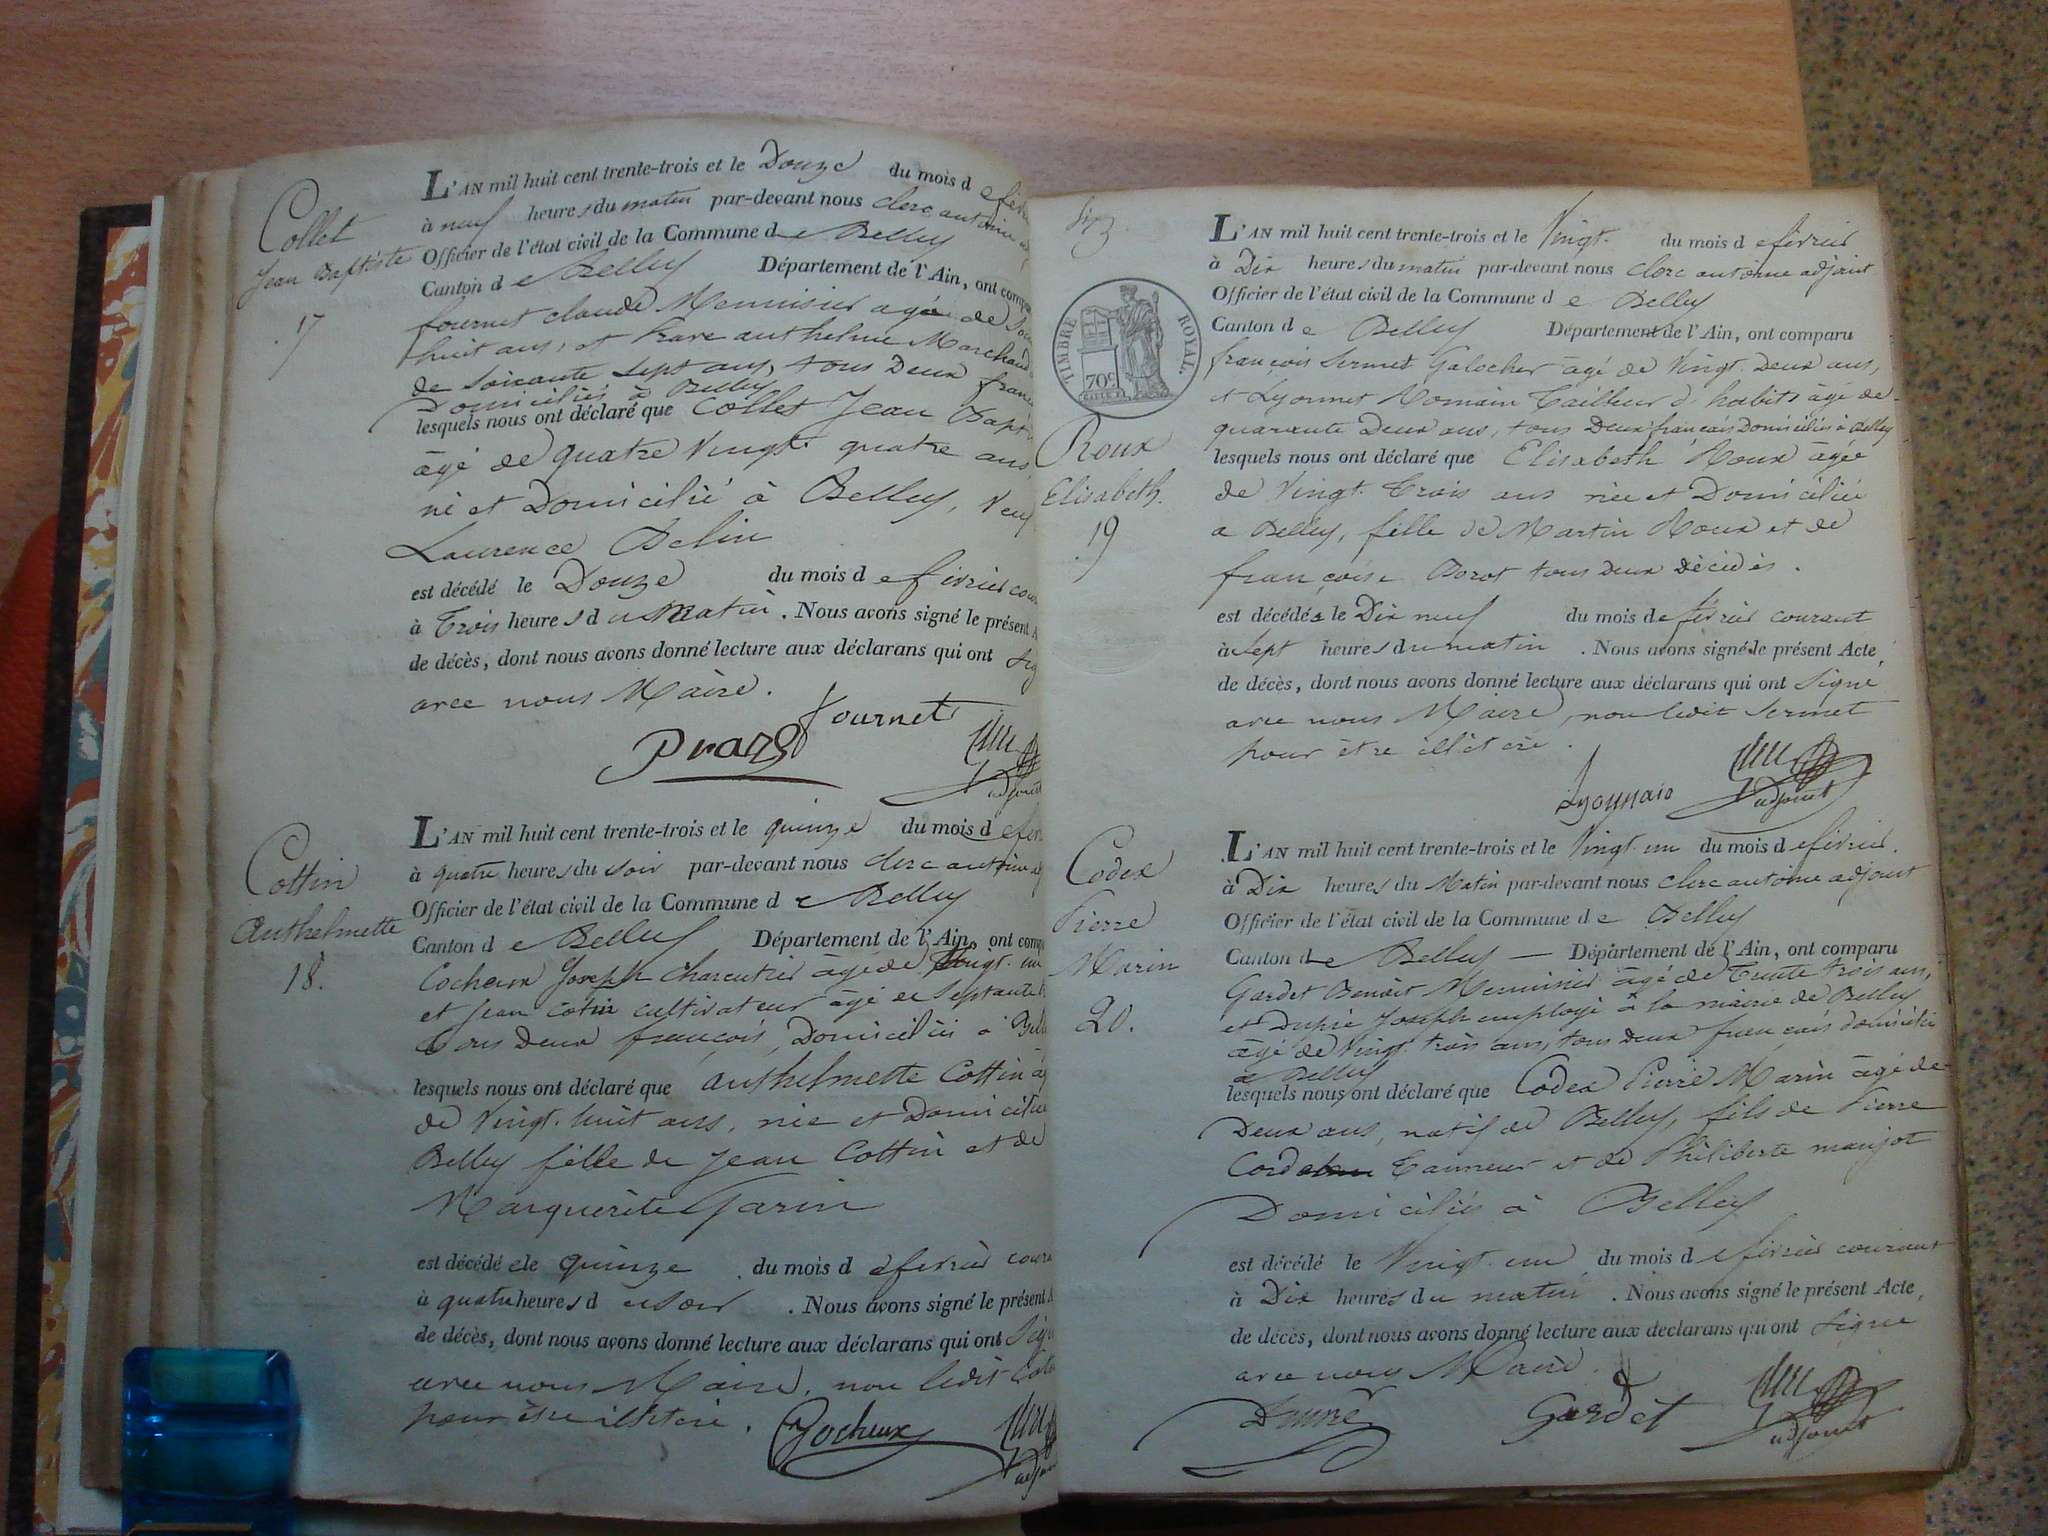 Collet
Jean Baptiste
17
L'AN mil huit cent trente-trois et le Douze du mois de
à neuf heures du matin par-devant nous clerc antoine
Officier de l'état civil de la Commune de Belley
Canton de Belley Département de l'Ain, ont
fournet claude Menuisier agé de
huit ans, et anthelme Marchand
de soixante sept ans, tous Deux
Domiciliés à Belley
lesquels nous ont déclaré que Collet Jean
âgé de quatre Vingt quatre ans
né et Domicilié à Belley,
Laurence Belin
est décédé le Douze du mois de fevrier
à Trois heures du Matin. Nous avons signé le présent
de décès, dont nous avons donné lecture aux déclarans qui ont
avec nous Maire.
fournet
Cottin
Anthelmette
18.
L'AN mil huit cent trente-trois et le quinze du mois de
à quatre heures du soir par-devant nous clerc antoine
Officier de l'état civil de la Commune de Belley
Canton de Belley Département de l'Ain, ont
Joseph Charcutier âgé de Vingt un
et Jean Cotin cultivateur âgé de
Tous Deux français, Domiciliés à
lesquels nous ont déclaré que anthelmette Cottin
de Vingt huit ans, née et Domiciliée
Belley fille de Jean Cottin et de
Marguerite Garin
est décédée le quinze du mois de fevrier
à quatre heures du soir. Nous avons signé le présent
de décès, dont nous avons donné lecture aux déclarans qui ont
avec nous Maire, non ledit
pour être illetéré.
TIMBRE ROYAL
70c
Roux
Elisabeth.
19
L'AN mil huit cent trente-trois et le Vingt du mois de fevrier
à Dix heures du matin par-devant nous clerc antoine adjoint
Officier de l'état civil de la Commune de Belley
Canton de Belley Département de l'Ain, ont comparu
françois Sermet Galocher âgé de Vingt Deux ans,
et Lyonnet Romain Tailleur d'habits âgé de
quarante Deux ans, tous Deux francais Domiciliés à Belley
lesquels nous ont déclaré que Elisabeth Roux âgée
de Vingt Trois ans née et Domiciliée
a Belley, fille de Martin Roux et de
françoise Borot tous deux décédés.
est décédée le Dix neuf du mois de fevrier courant
à sept heures du matin. Nous avons signé le présent Acte
de décès, dont nous avons donné lecture aux déclarans qui ont Signé
avec nous Maire, non ledit Sermet
pour être illetéré.
Lyonnais
adjoint
Codex
Pierre
Marin
20.
L'AN mil huit cent trente-trois et le Vingt un du mois de fevrier.
à Dix heures du Matin par-devant nous clerc antoine adjoint
Officier de l'état civil de la Commune de Belley
Canton de Belley — Département de l'Ain, ont comparu
Gardet Benoit Menuisier âgé de Trente trois ans,
et Joseph employé à la mairie de Belley
âgé de Vingt trois ans, tous deux francais domiciliés
à Belley
lesquels nous ont déclaré que Codex Pierre Marin âgé de
Deux ans, natif de Belley, fils de Pierre
Tanneur et de Philiberte
Domiciliés à Belley
est décédé le Vingt un du mois de fevrier courant
à Dix heures du matin. Nous avons signé le présent Acte,
de décès, dont nous avons donné lecture aux déclarans qui ont Signé
avec nous Maire.
Gardet
adjoint